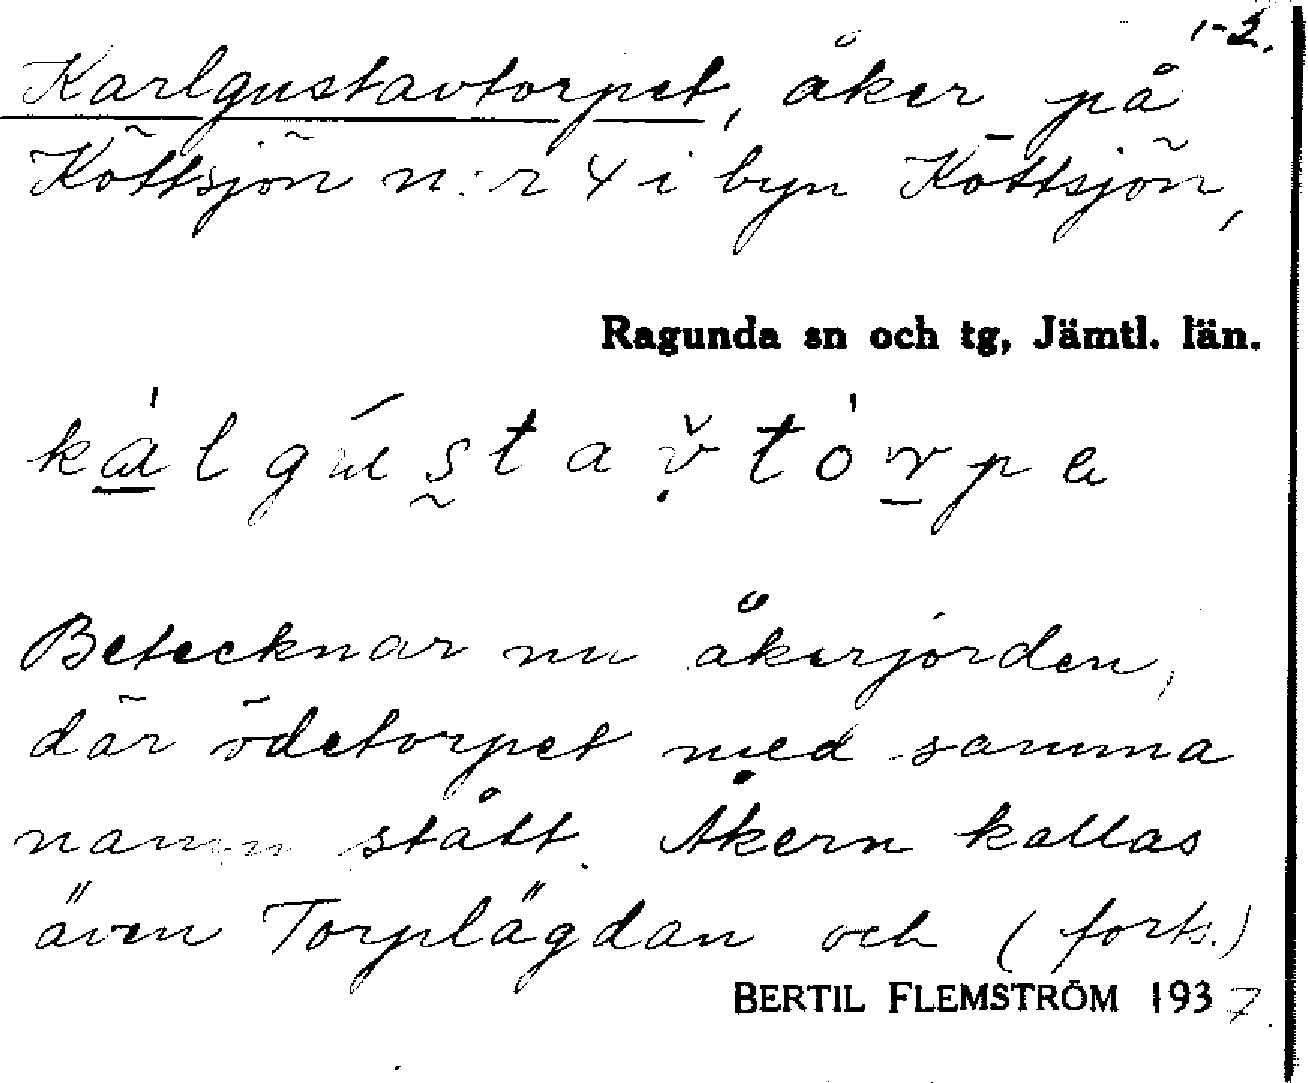 1-2.
Karlgustavtorpet, åker på
Köttsjön n:r 4 i byn Köttsjön,
Ragunda sn och tg, Jämtl. län.
kálgústavtórpa
Betecknar nu åkerjorden,
där ödetorpet med samma
namn stått. Åkern kallas
även Torplägdan och (forts.)
BERTIL FLEMSTRÖM 1937.